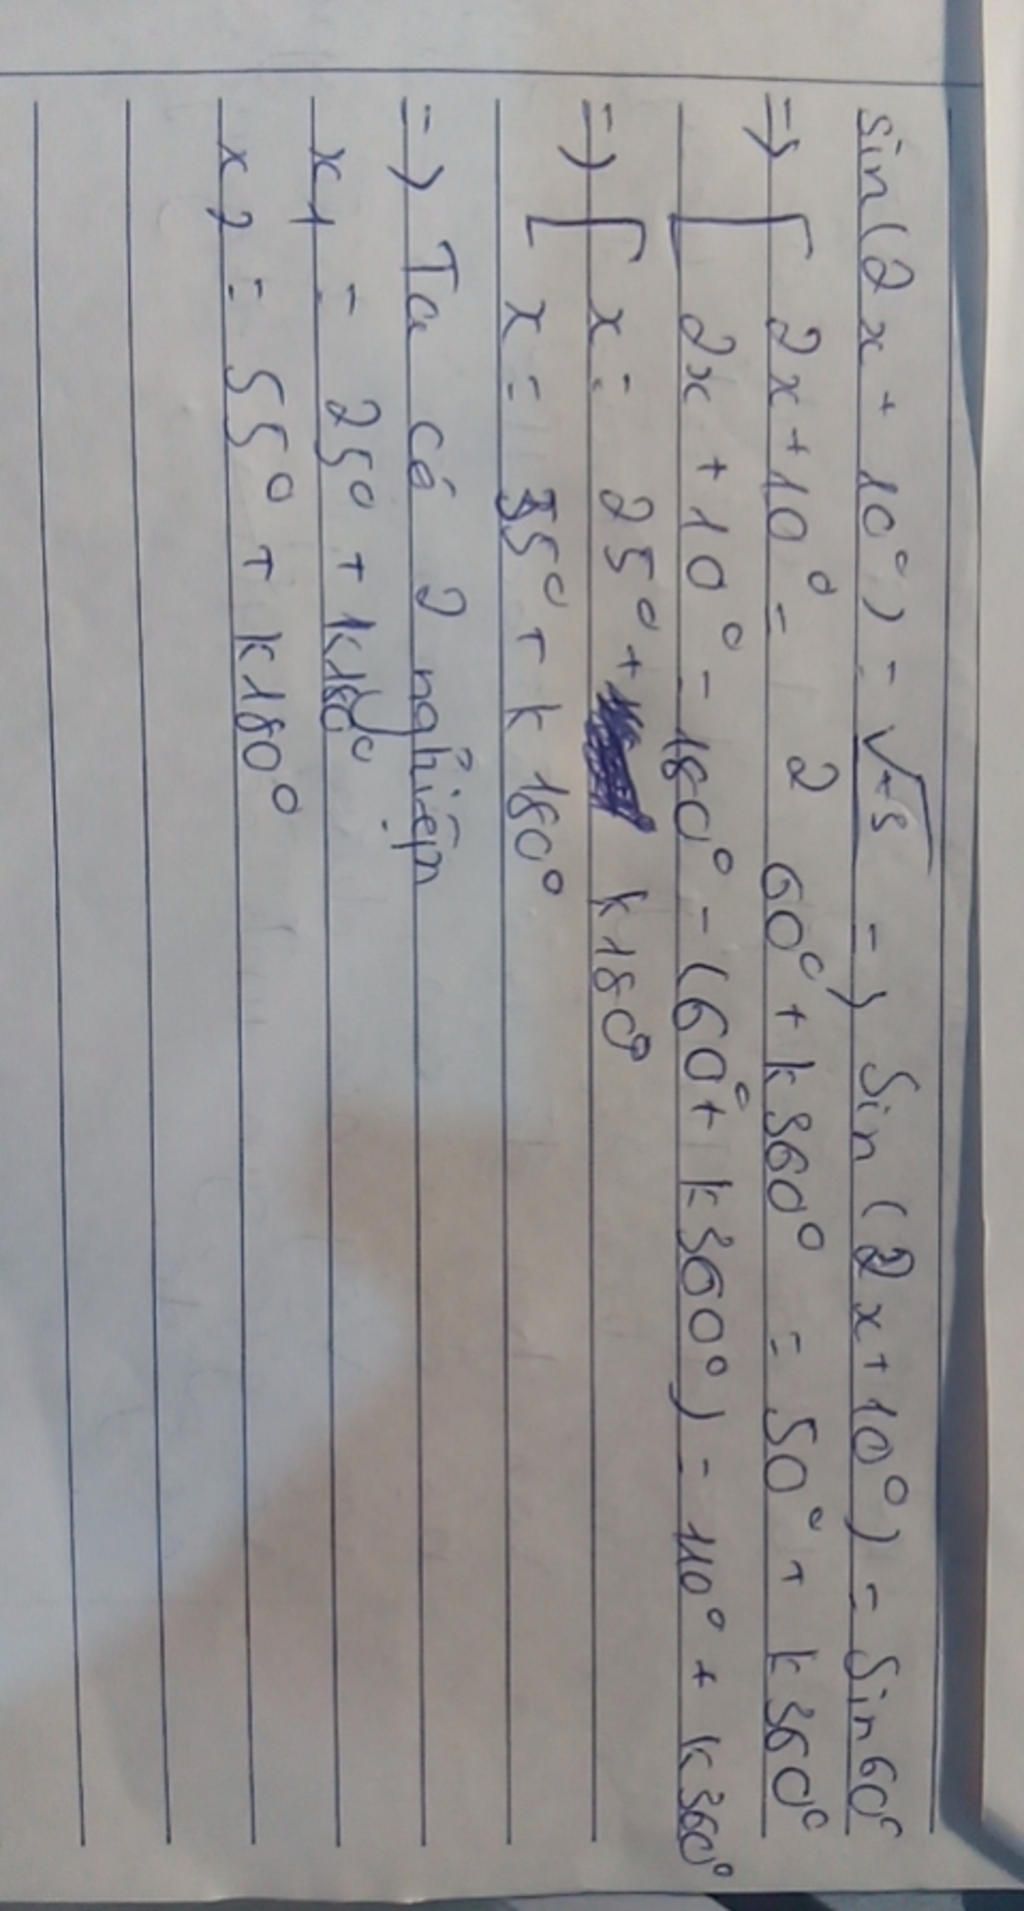 sin(2x + 10°) = √3 => Sin (2x+10°) = Sin 60°
=> [ 2x+10° = 60° + k360° = 50° + k360°
[ 2x + 10° = 180° - (60° + k360°) = 110° + k360°
=> [ x = 25° + k180°
[ x = 55° + k180°
=> Ta có 2 nghiệm
x1 = 25° + k180°
x2 = 55° + k180°
2